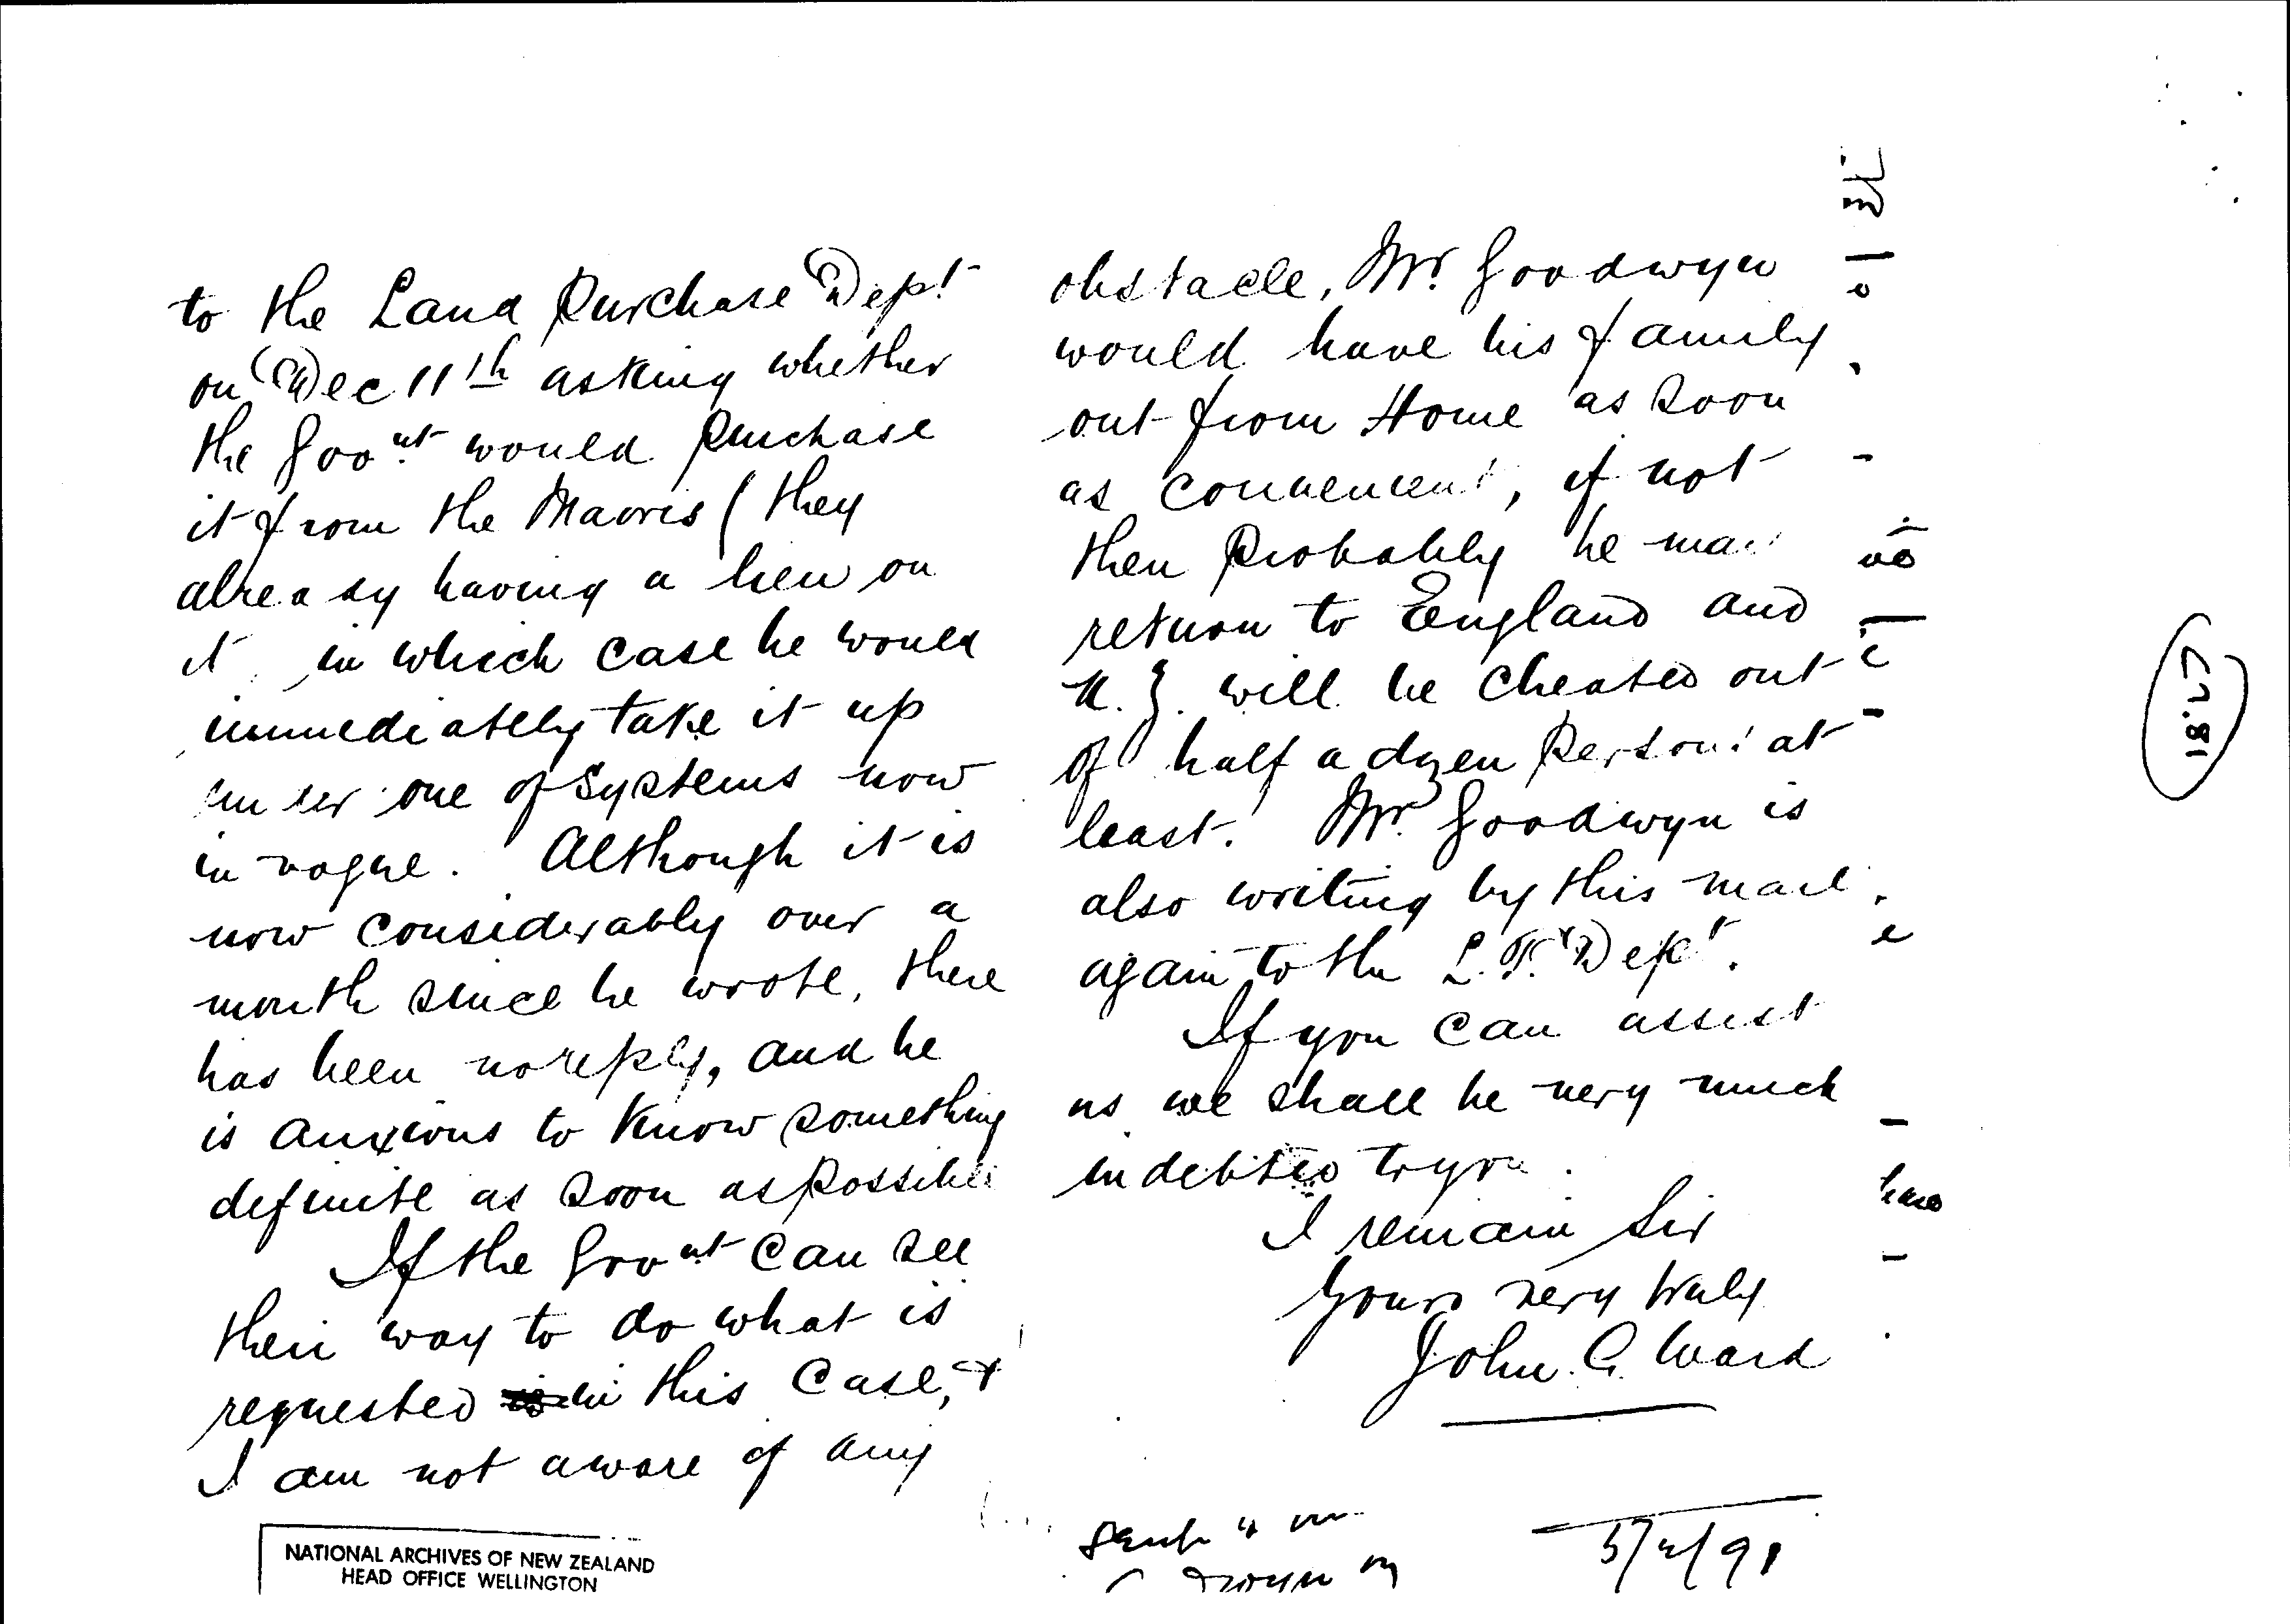 to the Land Purchase Dept
on Dec 11th asking whether
the Govnt would purchase
it from the Maoris (they
already having a lien on
it, in which case he would
immediately take it up
under one of systems now
in vogue. Although it is
now considerably over a
month since he wrote, there
has been no reply, and he
is anxious to know something
definite as soon as possible
If the Govnt can see
their way to do what is
requested in this case, &
I am not aware of any
NATIONAL ARCHIVES OF NEW ZEALAND
HEAD OFFICE WELLINGTON
obstacle, Mr. Goodwyn
would have his family
out from Home as soon
as convenient, if not
then probably he may
return to England and
N.Z. will be cheated out
of half a dozen persons at
least. Mr. Goodwyn is
also writing by this mail
again to the L.P. Dept.
If you can assist
us we shall be very much
indebted to you.
I remain Sir
Yours very truly
John. G. Ward